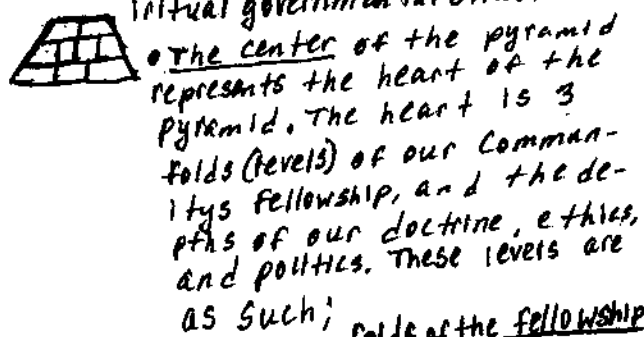 • The center of the pyramid
represents the heart of the
pyramid. The heart is 3
folds (levels) of our Commun-
itys fellowship, and the de-
pths of our doctrine, ethics,
and politics. These levels are
as such;
folds of the fellowship